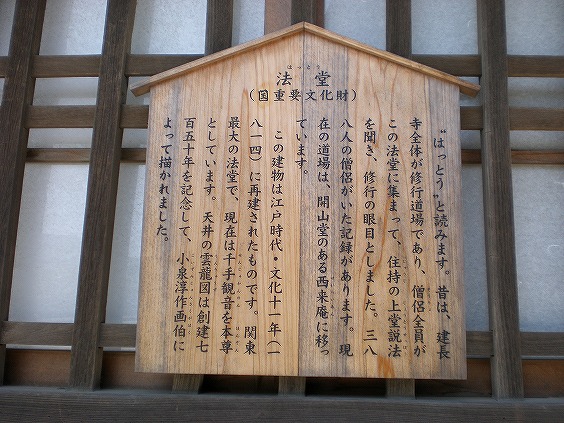 はっとう
法堂
（国重要文化財）
"はっとう"と読みます。昔は、建長
寺全体が修行道場であり、僧侶全員が
この法堂に集まって、住持の上堂説法
を聞き、修行の眼目としました。三八
八人の僧侶がいた記録があります。現
在の道場は、開山堂のある西来庵に移っ
ています。
この建物は江戸時代・文化十一年（一
八一四）に再建されたものです。関東
最大の法堂で、現在は千手観音を本尊
としています。天井の雲龍図は創建七
百五十年を記念して、小泉淳作画伯に
よって描かれました。